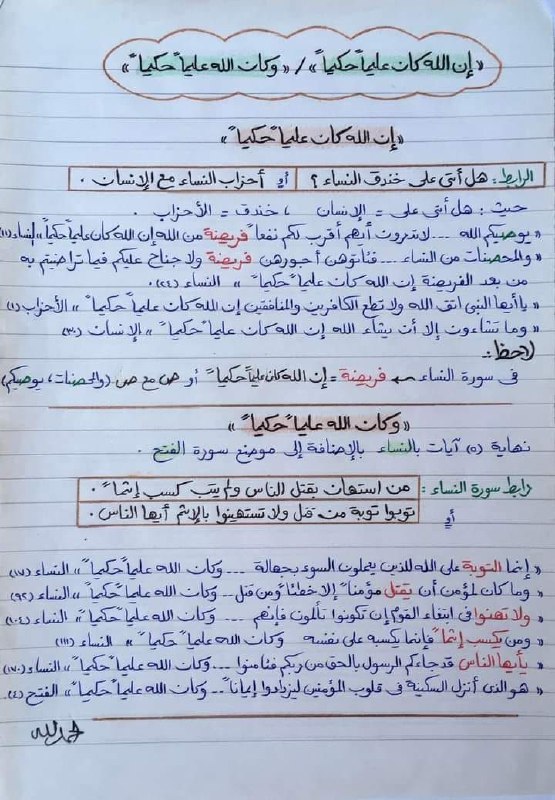 « إن الله كان عليماً حكيماً » / « وكان الله عليماً حكيماً »
« إن الله كان عليماً حكيماً »
الرابط: هل أتى على خندق النساء ؟ أو أحزاب النساء مع الإنسان .
حيث : هل أتى على = الإنسان ، خندق = الأحزاب .
« يوصيكم الله ... لا تدرون أيهم أقرب لكم نفعاً فريضة من الله إن الله كان عليماً حكيماً » النساء (١١)
« والمحصنات من النساء ... فئاتوهن أجورهن فريضة ولا جناح عليكم فيما تراضيتم به
من بعد الفريضة إن الله كان عليماً حكيماً » النساء (٢٤)
« يا أيها النبي اتق الله ولا تطع الكافرين والمنافقين إن الله كان عليماً حكيماً » الأحزاب (١)
« وما تشاءون إلا أن يشاء الله إن الله كان عليماً حكيماً » الإنسان (٣٠)
لاحظ :
في سورة النساء ← فريضة = إن الله كان عليماً حكيماً أو ص مع ص (والمحصنات ، يوصيكم)
« وكان الله عليماً حكيماً »
نهاية (٥) آيات بالنساء بالإضافة إلى موضع سورة الفتح .
رابط سورة النساء : من استهان بقتل للناس ولم يتب كسب إثماً .
أو توبوا توبة من قتل ولا تستهينوا بالإثم أيها الناس .
« إنما التوبة على الله للذين يعملون السوء بجهالة ... وكان الله عليماً حكيماً » النساء (١٧)
« وما كان لمؤمن أن يقتل مؤمناً إلا خطئاً ومن قتل .. وكان الله عليماً حكيماً » النساء (٩٢)
« ولا تهنوا في ابتغاء القوم إن تكونوا تألمون فإنهم ... وكان الله عليماً حكيماً » النساء (١٠٤)
« ومن يكسب إثماً فإنما يكسبه على نفسه وكان الله عليماً حكيماً » النساء (١١١)
« يا أيها الناس قد جاءكم الرسول بالحق من ربكم فئامنوا ... وكان الله عليماً حكيماً » النساء (١٧٠)
« هو الذي أنزل السكينة في قلوب المؤمنين ليزدادوا إيماناً .. وكان الله عليماً حكيماً » الفتح (٤)
الحمد لله